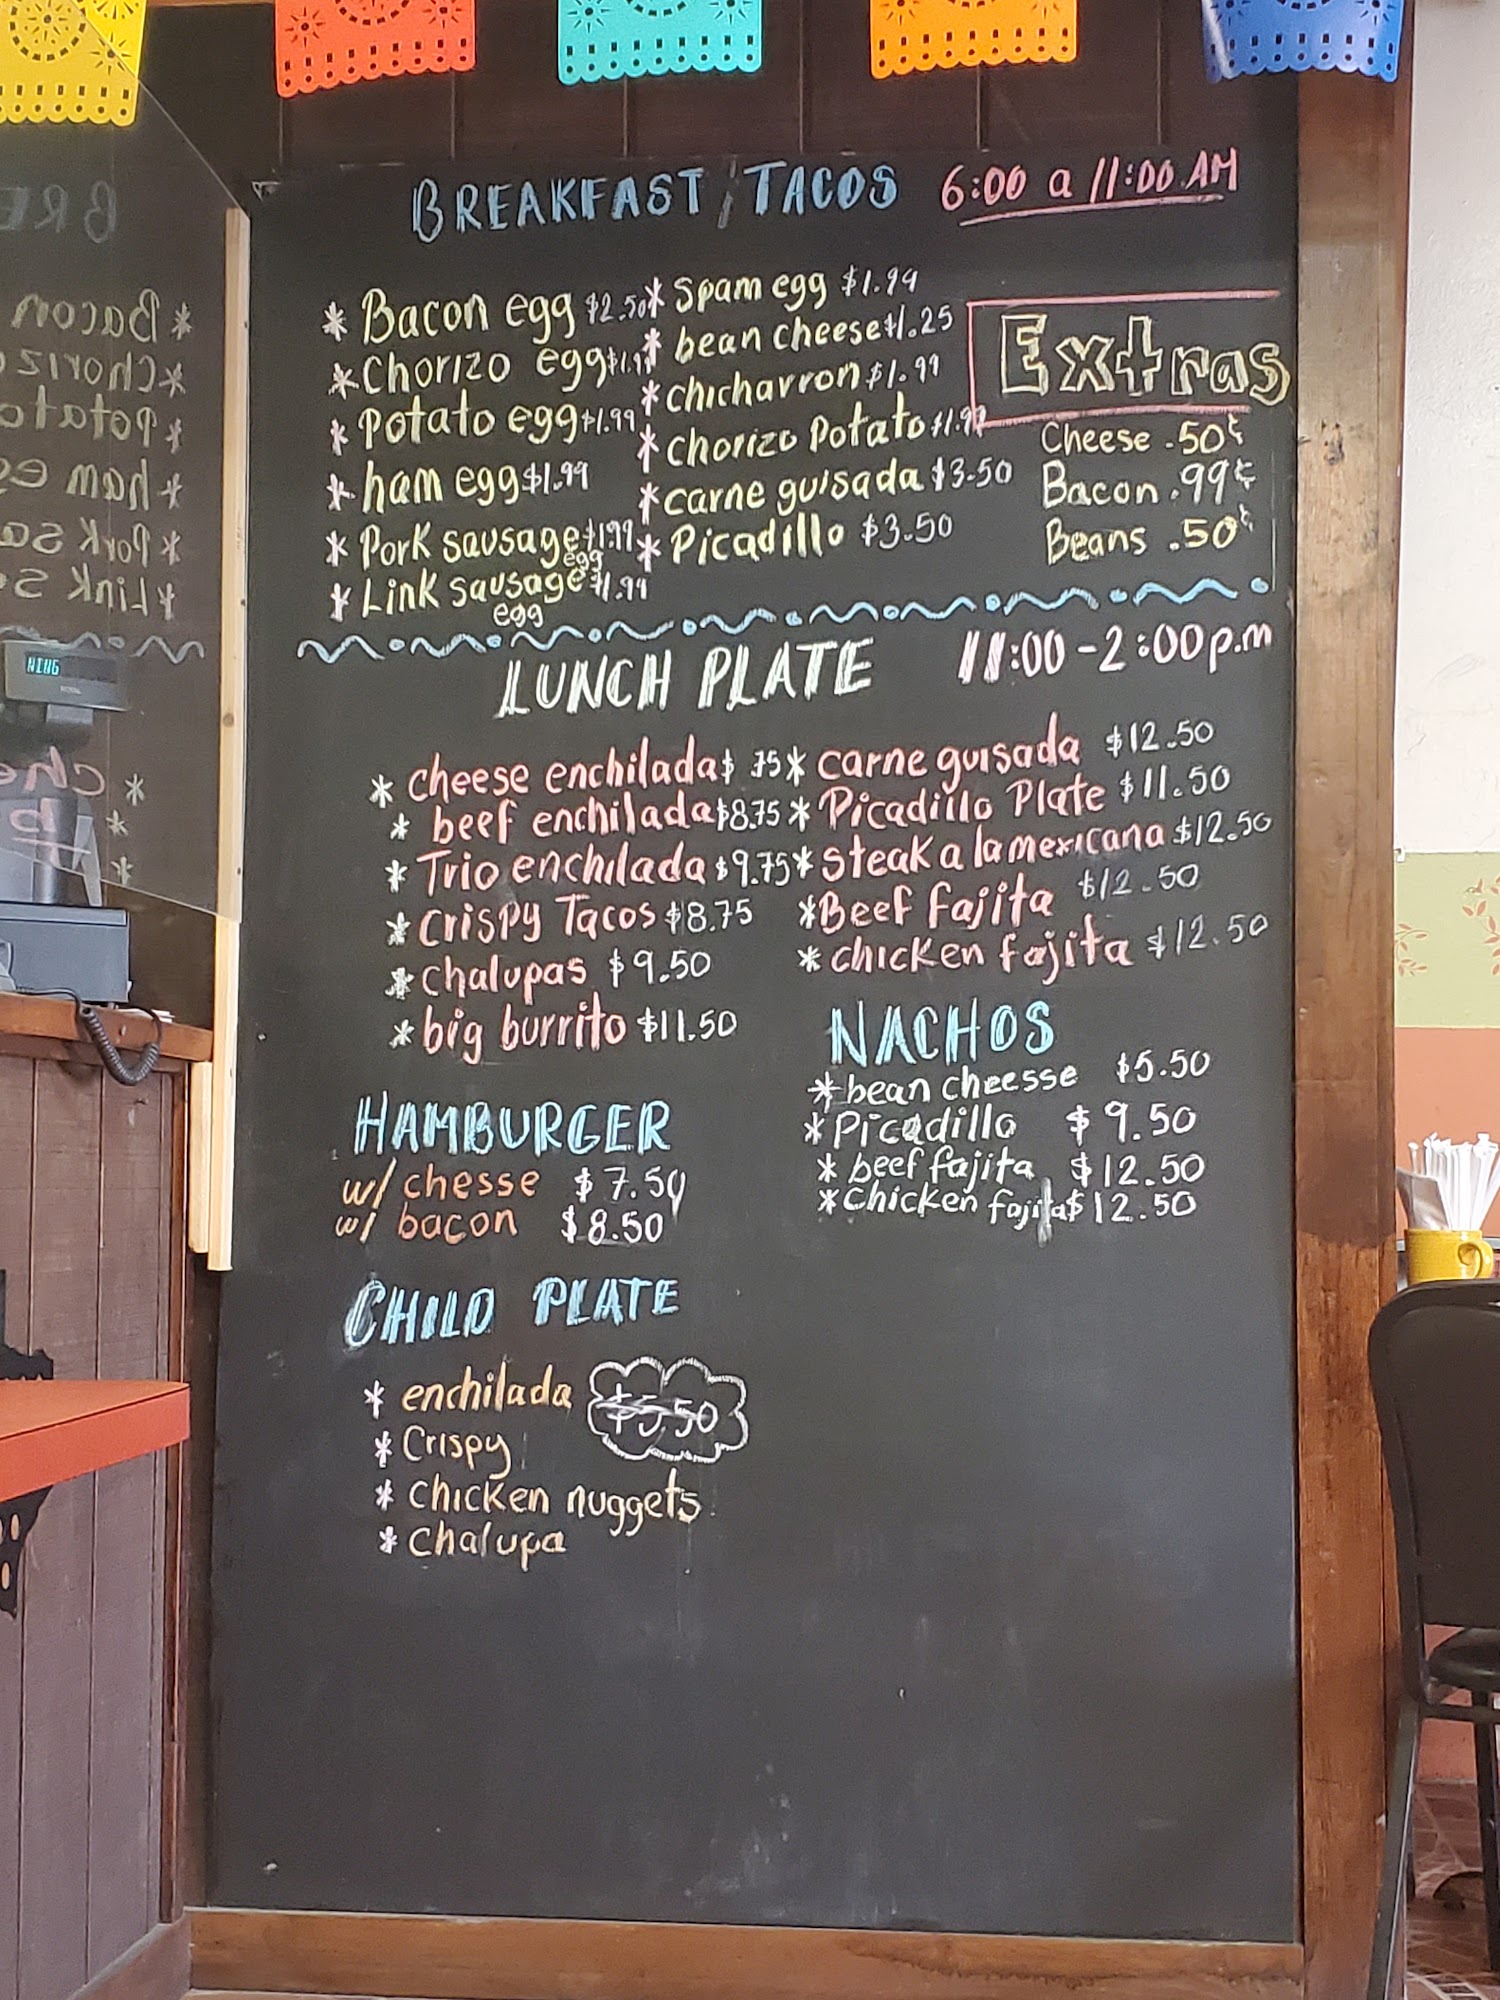 BREAKFAST/TACOS 6:00 a 11:00 AM
* Bacon egg $2.50
* Chorizo egg $1.99
* Potato egg $1.99
* ham egg $1.99
* Pork sausage $1.99
egg
* Link sausage $1.99
egg
* Spam egg $1.99
* bean cheese $1.25
* chicharron $1.99
* chorizo Potato $1.99
* carne guisada $3.50
* Picadillo $3.50
Extras
Cheese .50¢
Bacon .99¢
Beans .50¢
LUNCH PLATE 11:00-2:00p.m
* cheese enchilada $ .75
* beef enchilada $8.75
* Trio enchilada $9.75
* Crispy Tacos $8.75
* chalupas $9.50
* big burrito $11.50
* carne guisada $12.50
* Picadillo Plate $11.50
* steak a la mexicana $12.50
* Beef fajita $12.50
* chicken fajita $12.50
HAMBURGER
w/ chesse $7.50
w/ bacon $8.50
NACHOS
* bean cheesse $5.50
* Picadillo $9.50
* beef fajita $12.50
* Chicken fajita $12.50
CHILD PLATE
* enchilada $5.50
* Crispy
* Chicken nuggets
* Chalupa
NING